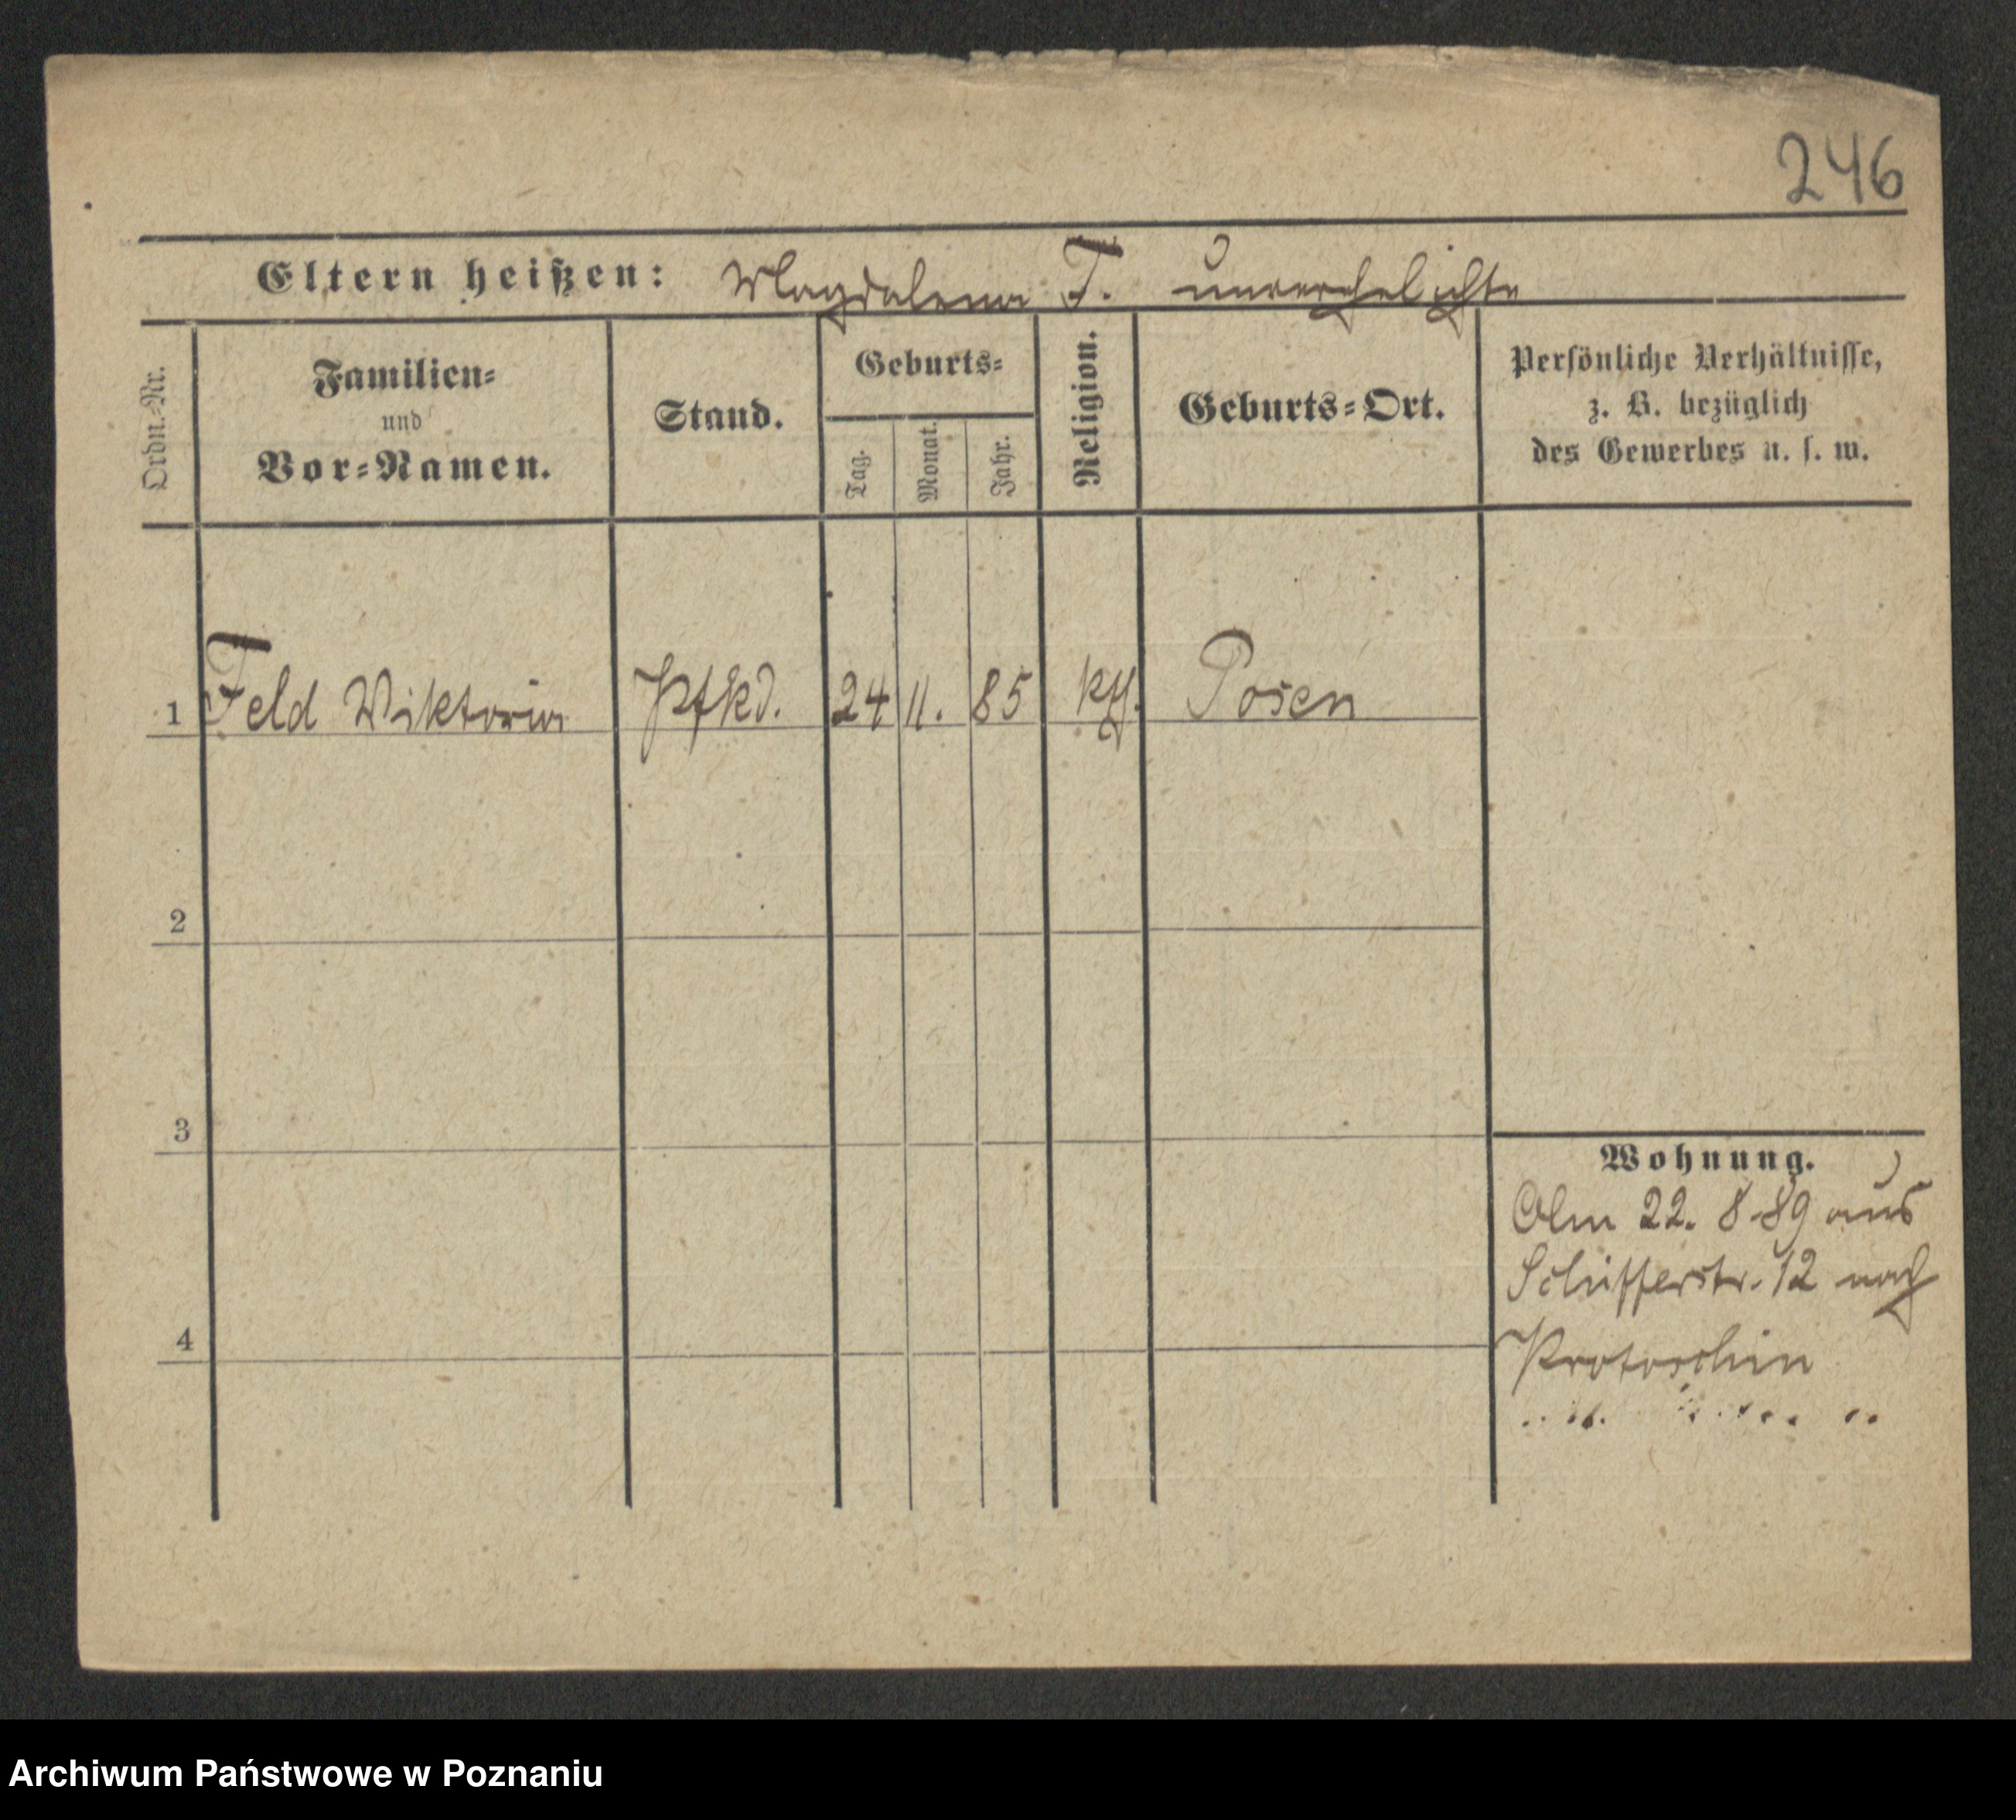 246
Eltern heißen: Magdalena F. unverehelichte
Ordn.-Nr.
Familien-
und
Vor-Namen.
Stand.
Geburts-
Tag.
Monat.
Jahr.
Religion.
Geburts-Ort.
Persönliche Verhältnisse,
z. B. bezüglich
des Gewerbes u. s. w.
1 Feld Wiktoria Pflkd. 24 11. 85 kth. Posen
2
3
4
Wohnung.
Abm 22. 8. 89 aus
Schifferstr. 12 nach
Krotoschin
Archiwum Państwowe w Poznaniu